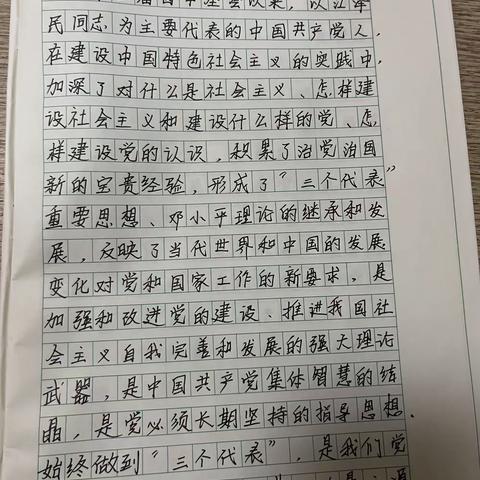 届四中全会以来，以江泽
民同志为主要代表的中国共产党人，
在建设中国特色社会主义的实践中，
加深了对什么是社会主义、怎样建
设社会主义和建设什么样的党、怎
样建设党的认识，积累了治党治国
新的宝贵经验，形成了“三个代表”
重要思想、邓小平理论的继承和发
展，反映了当代世界和中国的发展
变化对党和国家工作的新要求，是
加强和改进党的建设、推进我国社
会主义自我完善和发展的强大理论
武器，是中国共产党集体智慧的结
晶，是党必须长期坚持的指导思想．
始终做到“三个代表”，是我们党